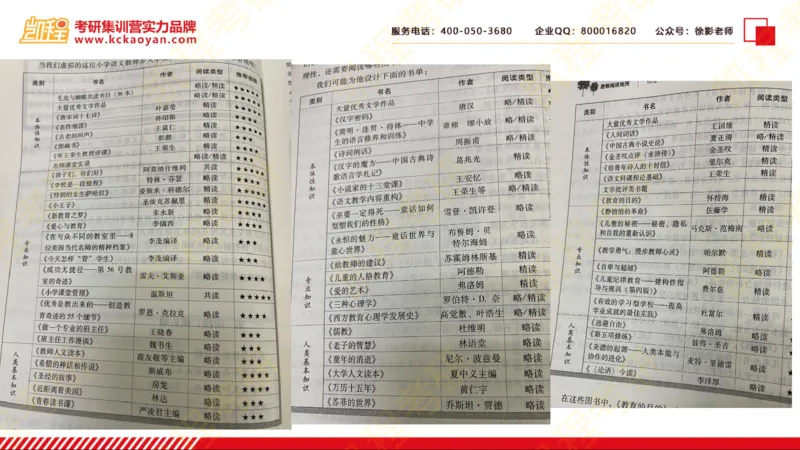 凯程
考研集训营实力品牌
www.kckaoyan.com
服务电话：400-050-3680 企业QQ：800016820 公众号：徐影老师
类别 书名 作者 阅读类型 推荐指数
毛虫与蝴蝶共读书目（36本） 略读/精读
大量优秀文学作品 略读/精读
《唐宋词十七讲》 叶嘉莹 精读
《名作细读》 孙绍振 精读
《古老的回声》 王富仁 精读
《图画书》 彭懿 略读
《听王荣生教授评课》 王荣生 精读
名师课堂实录 略读/精读
《孩子们，你们好》 阿莫纳什维利 共读
《学校是一段旅程》 特林·芬瑟 略读
《特别的女生萨哈拉》 爱斯米·科德尔 精读
《小王子》 圣埃克苏佩里 精读
《新教育之梦》 朱永新 略读
《爱心与教育》 李镇西 略读
《在与众不同的教室里——8
位美国当代名师的精神档案》 李茂编译 略读
《今天怎样“管”学生》 李茂编译 略读
《成功无捷径——第56号教
室的奇迹》 雷夫·艾斯奎 略读
《小学课堂管理》 温斯坦 共读
《优秀是教出来的——创造教
育奇迹的55个细节》 罗恩·克拉克 略读
《做一个专业的班主任》 王晓春 略读
《班主任工作漫谈》 魏书生 略读
《教师人文读本》 商友敬等主编 略读
《希腊的神话和传说》 斯威布 略读
《圣经的故事》 房龙 略读
《近距离看美国》 林达 略读
《青春读书课》 严凌君主编 略读
本体性知识
专业知识
人类基本知识
我们可能为他设计下面的书单：
类别 书名 作者 阅读类型
大量优秀文学作品 略/精读
《汉字密码》 唐汉 略/精读
《简明·连贯·得体——中学
生的语言修养和训练》 章熊 缪小放 略/精读
《诗词例话》 周振甫 略/精读
《汉字的魔方——中国古典诗
歌语言学札记》 葛兆光 精读
《小说家的十三堂课》 王安忆 略读
《语文教学内容重构》 王荣生等 略/精读
《巫婆一定得死——童话如何
型塑我们的性格》 雪登·凯许登 略读
《永恒的魅力——童话世界与
童心世界》 布鲁姆·贝
特尔海姆 略读
《给教师的建议》 苏霍姆林斯基 精读
《儿童的人格教育》 阿德勒 精读
《爱的艺术》 弗洛姆 精读
《三种心理学》 罗伯特·D.奈 略/精读
《西方教育心理学发展史》 高觉敷、叶浩生 略/精读
《儒教》 杜维明 略读
《老子的智慧》 林语堂 略读
《童年的消逝》 尼尔·波兹曼 略读
《大学人文读本》 夏中义主编 略读
《万历十五年》 黄仁宇 略读
《苏菲的世界》 乔斯坦·贾德 略读
本体性知识
专业知识
人类基本知识
教师阅读地图
类别 书名 作者 阅读类型
大量优秀文学作品
《人间词话》 王国维 精读
《中国古典小说史论》 夏志清 略/精读
《金圣叹点评〈水浒传〉》 金圣叹 精读
《给青年诗人的十封信》 里尔克 精读
《语文科课程论基础》 王荣生 精读
文学批评类书籍
《教育的目的》 怀特海 精读
《静悄悄的革命》 佐藤学 精读
《儿童的秘密——秘密、隐私
和自我的重新认识》 马克斯·范梅南 略读
《教学勇气：漫步教师心灵》 帕尔默 精读
《自卑与超越》 阿德勒 略读
《儿童纪律教育——建构性指
导与规训（第四版）》 费尔兹 精读
《有效的学习型学校——提高
学业成就的最佳实践》 杜富尔 精读
《逃避自由》 弗洛姆 略读
《第五项修炼》 彼得·圣吉 略读
《美德的起源——人类本能与
协作的进化》 麦特·里德雷 略读
《〈论语〉今读》 李泽厚 略读
本体性知识
专业知识
人类基本知识